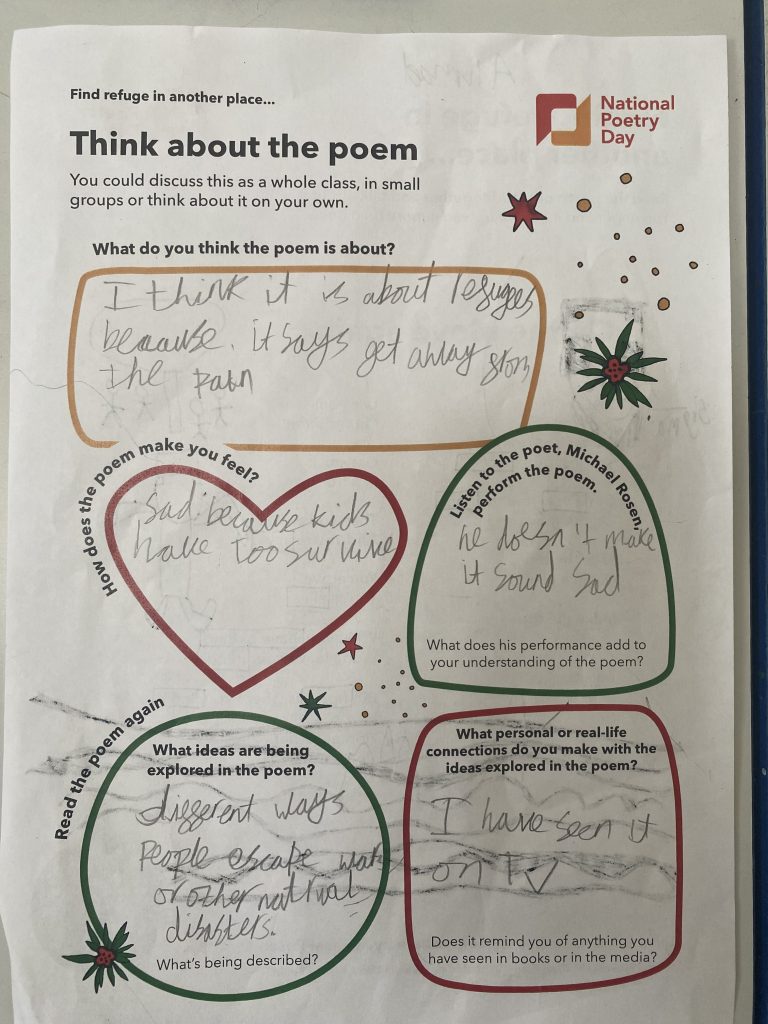 Find refuge in another place...
National
Poetry
Day
Think about the poem
You could discuss this as a whole class, in small
groups or think about it on your own.
What do you think the poem is about?
I think it is about refugees
because. it says get away from
the pain
How does the poem make you feel?
Sad because kids
have too survive
Listen to the poet, Michael Rosen,
perform the poem.
he doesn't make
it sound sad
What does his performance add to
your understanding of the poem?
Read the poem again
What ideas are being
explored in the poem?
different ways
people escape
or other natural
disasters.
What's being described?
What personal or real-life
connections do you make with the
ideas explored in the poem?
I have seen it
on TV
Does it remind you of anything you
have seen in books or in the media?